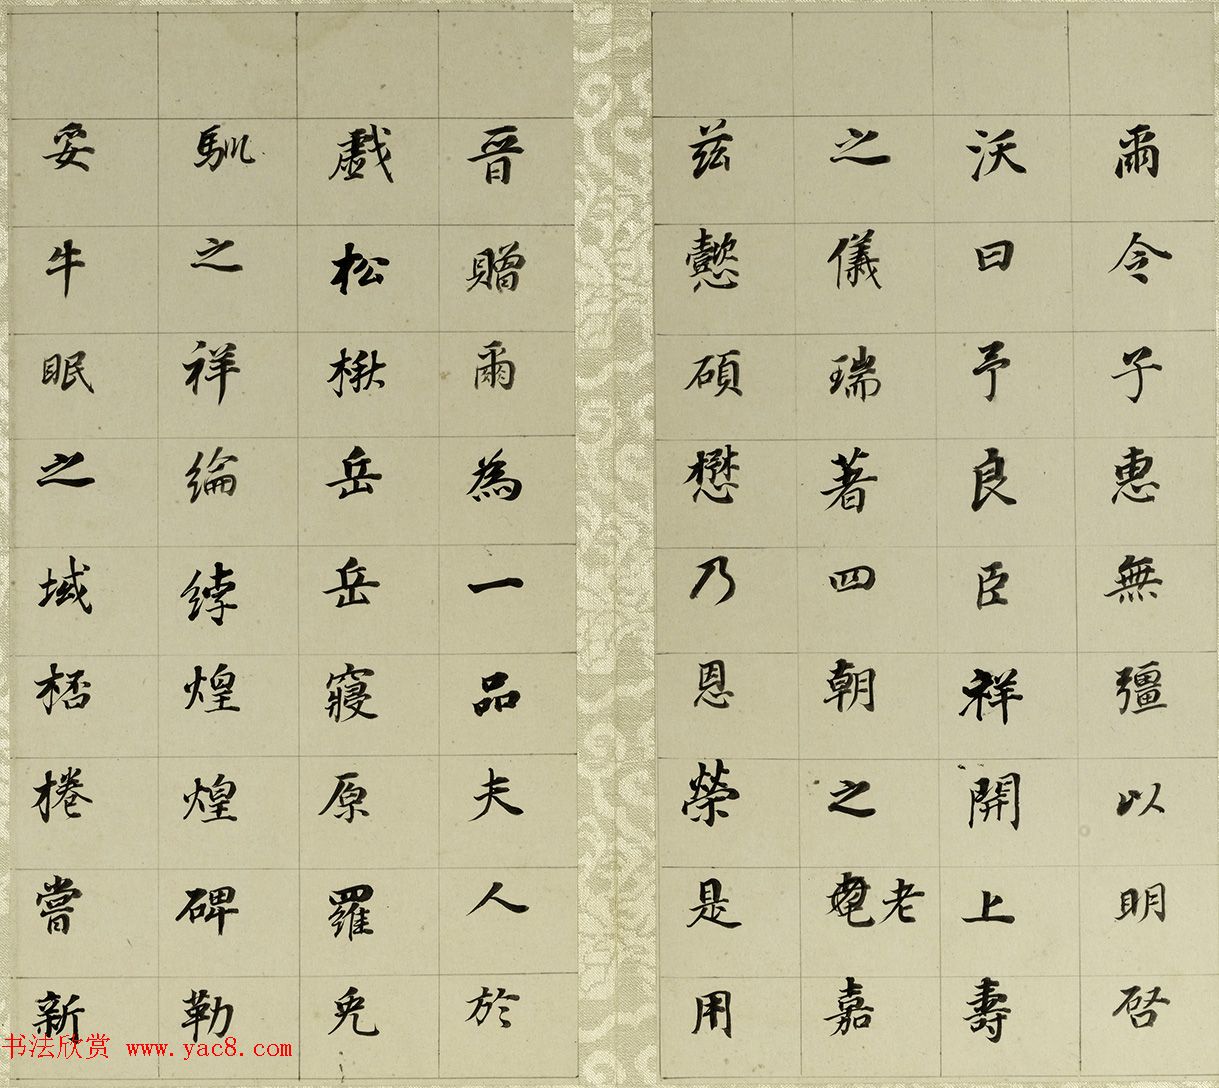 爾令子惠無彊以明啓
沃曰予良臣祥開上壽
之儀瑞著四朝之老嘉
茲懿碩懋乃恩榮是用
晉贈爾為一品夫人於
戲松楸岳岳寢原羅兕
馴之祥綸綍煌煌碑勒
妥牛眠之域桮棬嘗新
书法欣赏 www.yac8.com